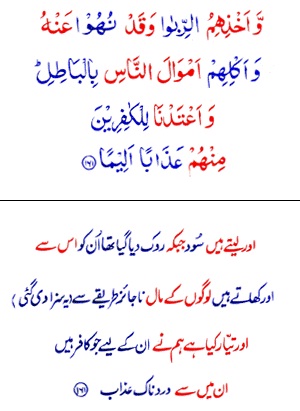 وَّاَخْذِهِمُ الرِّبٰوا وَقَدْ نُهُوْا عَنْهُ
وَاَكْلِهِمْ اَمْوَالَ النَّاسِ بِالْبَاطِلِ ؕ
وَاَعْتَدْنَا لِلْكٰفِرِيْنَ
مِنْهُمْ عَذَابًا اَلِيْمًا ﴿۱۶۱﴾
اور لیتے ہیں سُود جبکہ روک دیا گیا تھا اُن کو اس سے
اور کھاتے ہیں لوگوں کے مال ناجائز طریقے سے (یہ سزا دی گئی)
اور تیّار کیا ہے ہم نے ان کے لیے جو کافر ہیں
ان میں سے دردناک عذاب ﴿۱۶۱﴾